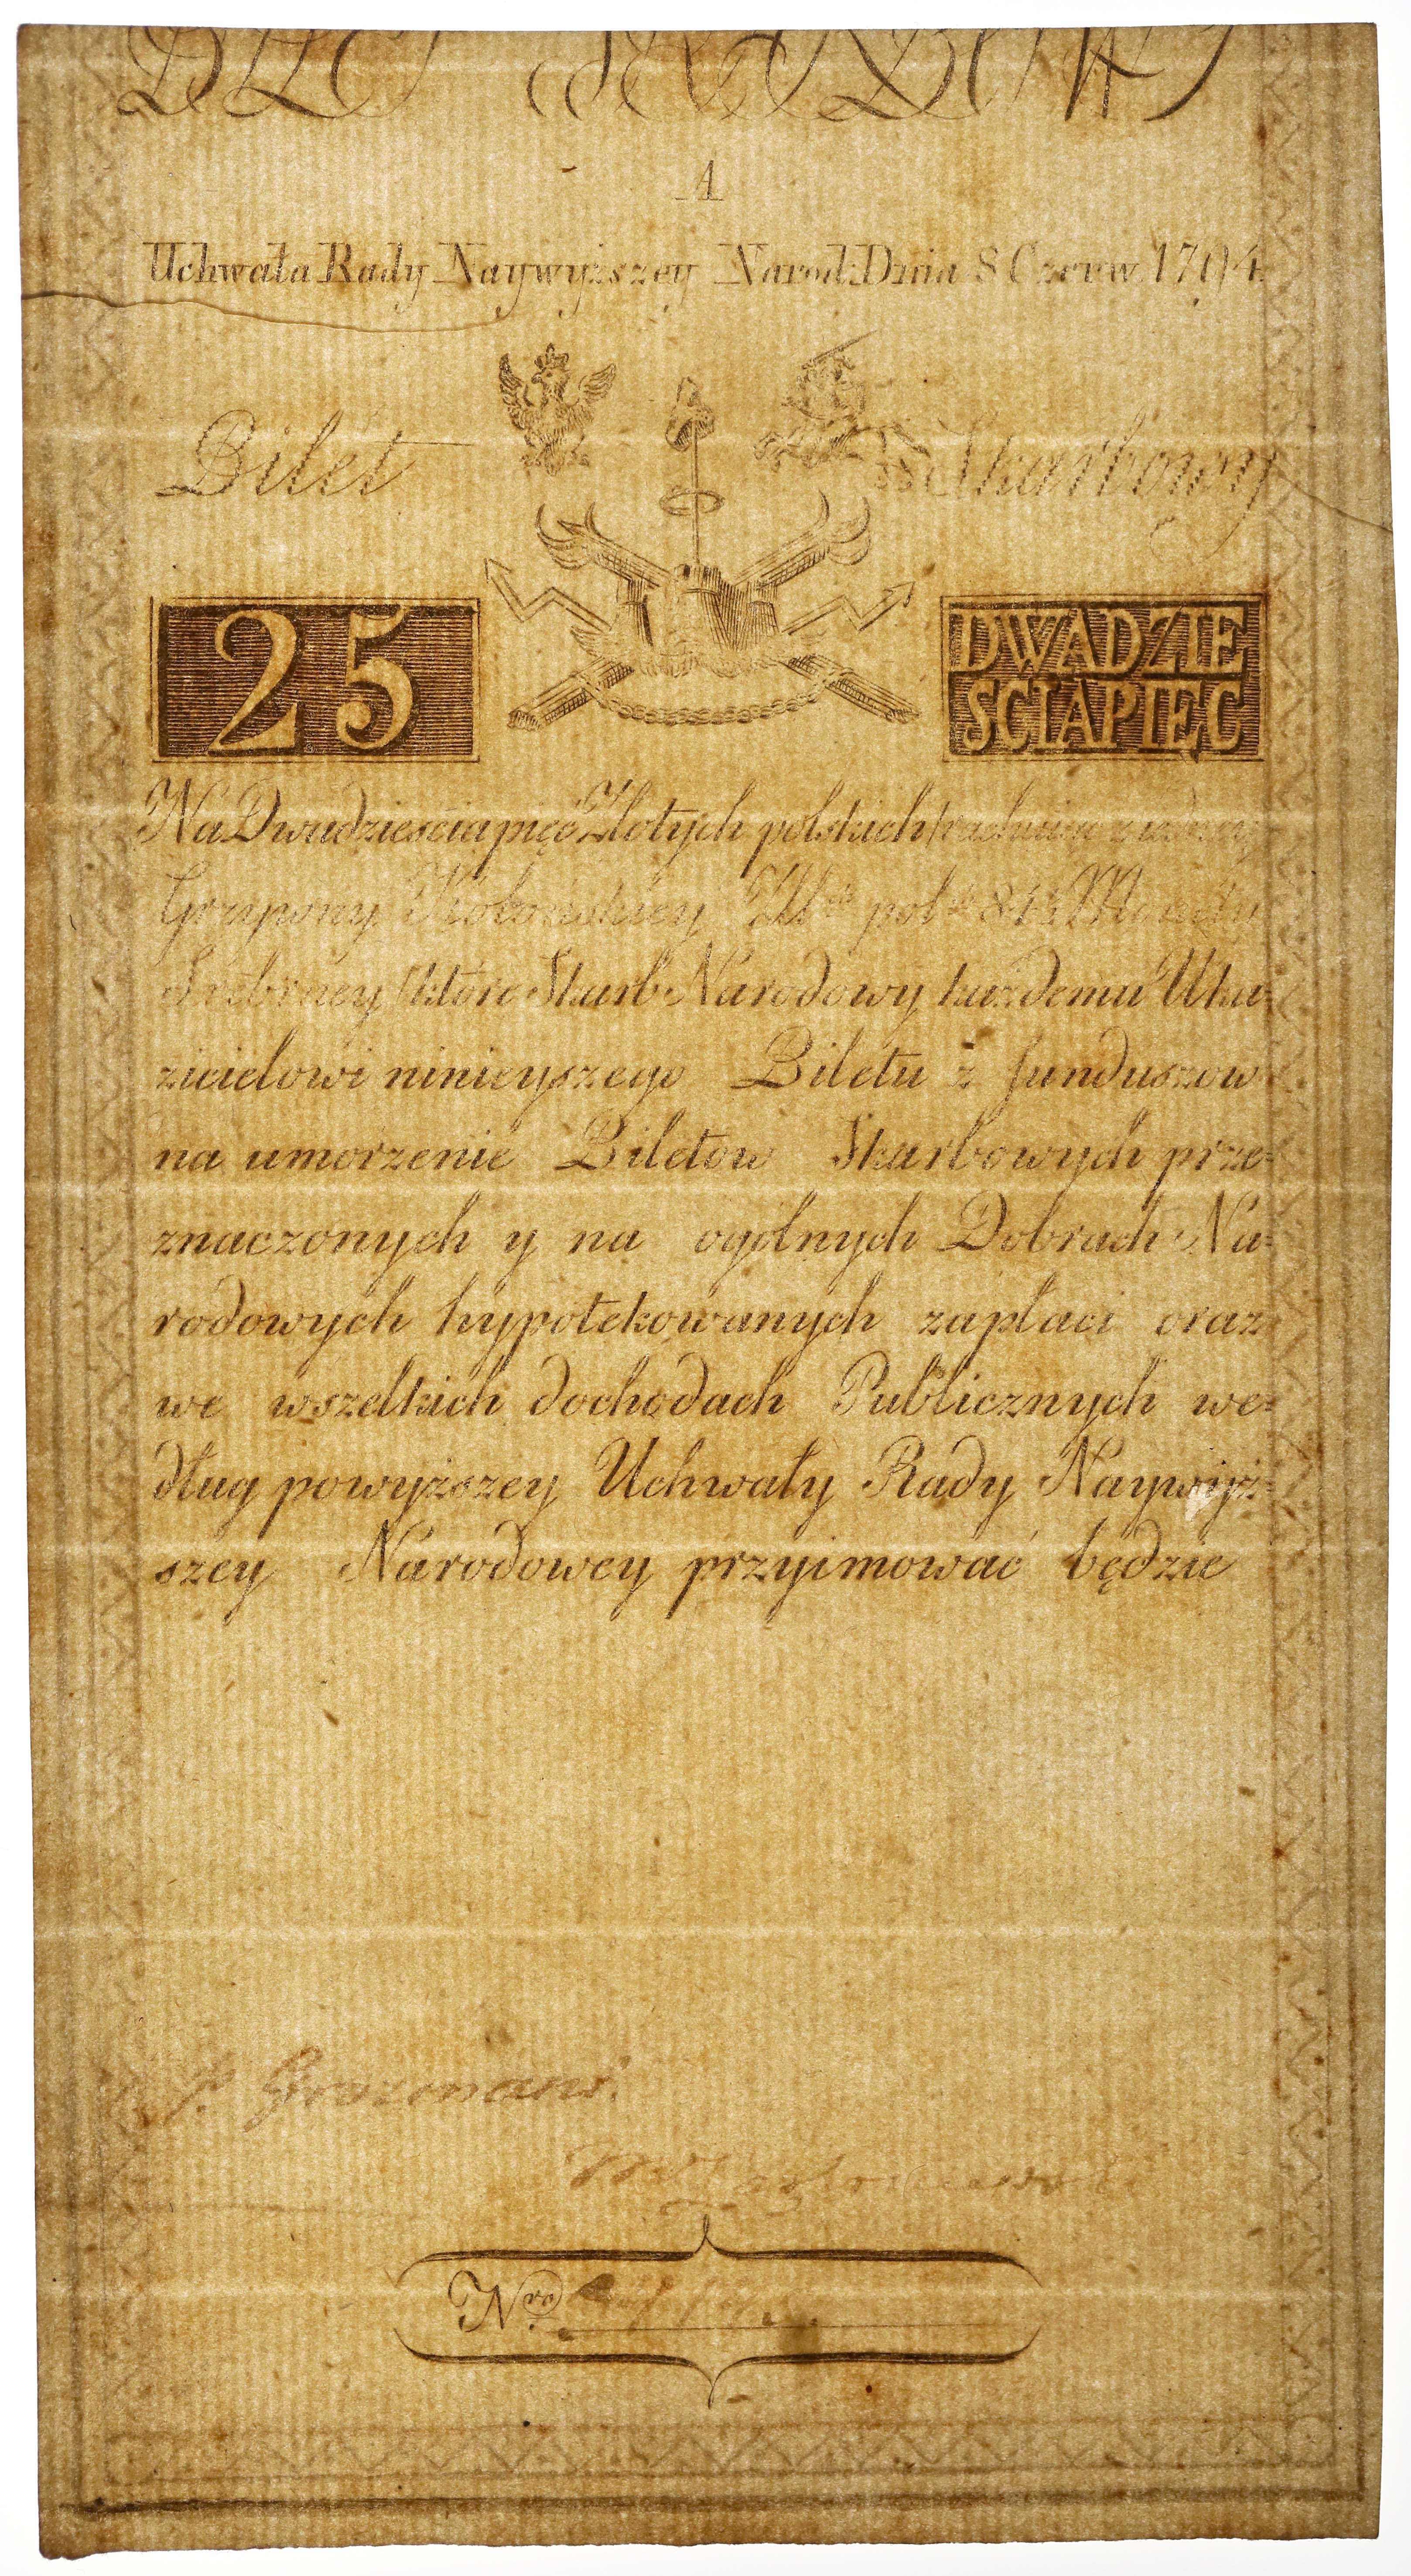 A
Uchwała Rady Naywyższey Narod: Dnia 8 Czerw. 1794.
Bilet Skarbowy
25
DWADZIE
SCIAPIĘC
Na Dwadzieścia pięć Złotych polskich (rachuiąc z iedney
Grzywny Kolońskiey Zł pol 84½ Monety
Srebrney) które Skarb Narodowy każdemu Uka=
zicielowi ninieyszego Biletu z funduszow
na umorzenie Biletow Skarbowych prze=
znaczonych y na ogólnych Dobrach Na=
rodowych hypotekowanych zapłaci oraz
we wszelkich dochodach Publicznych we=
dług powyższey Uchwały Rady Naywyż=
szey Narodowey przyimować będzie
Nro.